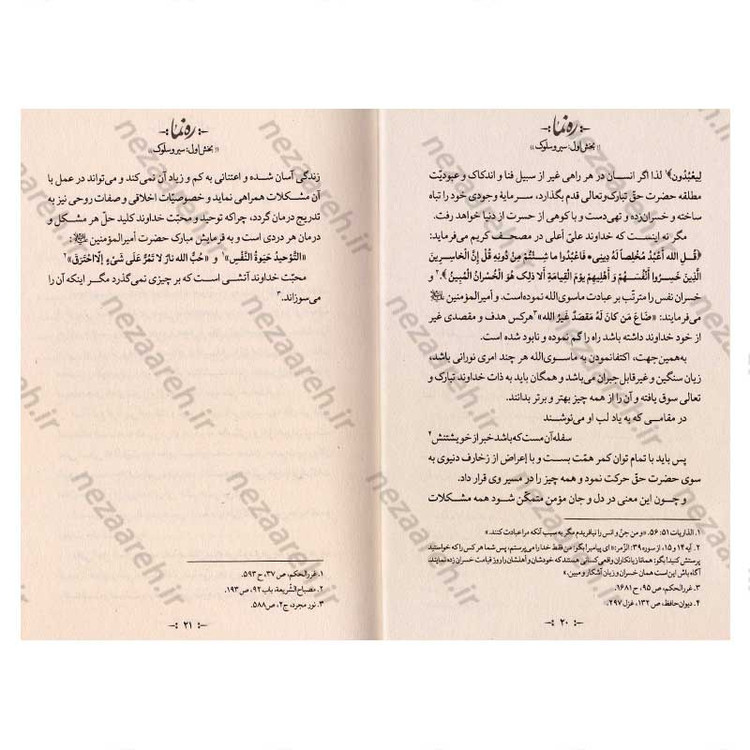 ره‌نما
«بخش اول: سیر و سلوک»
لِیَعْبُدُون﴾¹ لذا اگر انسان در هر راهی غیر از سبیل فنا و اندکاک و عبودیّت
مطلقه حضرت حقّ تبارک‌وتعالی قدم بگذارد، سرمایهٔ وجودی خود را تباه
ساخته و خسران‌زده و تهی‌دست و با کوهی از حسرت از دنیا خواهد رفت.
مگر نه اینست که خداوند علیّ أعلی در مصحف کریم می‌فرماید:
﴿قُـلِ الله أَعْبُـدُ مُخْلِصاً لَهُ دِینِی • فَاعْبُدُوا ما شِئْتُمْ مِنْ دُونِهِ قُلْ إِنَّ الْخاسِرِینَ
الَّذِینَ خَسِـرُوا أَنْفُسَـهُمْ وَ أَهْلِیهِمْ یَوْمَ الْقِیامَةِ أَلا ذلِکَ هُوَ الْخُسْرانُ الْمُبِینُ﴾.² و
خسران نفس را مترتّب بر عبادت ماسوی‌الله نموده‌است. و أمیرالمؤمنین ﷺ
می‌فرمایند: «ضَاعَ مَن کانَ لَهُ مَقصَدٌ غَیرُ الله»³ هرکس هدف و مقصدی غیر
از خود خداوند داشته باشد راه را گم نموده و نابود شده است.
به‌همین‌جهت، اکتفانمودن به ماسوی‌الله هر چند امری نورانی باشد،
زیان سنگین و غیرقابل جبران می‌باشد و همگان باید به ذات خداوند تبارک و
تعالی سوق یافته و آن را از همه چیز بهتر و برتر بدانند.
در مقامی که به یاد لب او می‌نوشند
سفله آن مست که باشد خبر از خویشتنش⁴
پس باید با تمام توان کمر همّت بست و با إعراض از زخارف دنیوی به
سوی حضرت حقّ حرکت نمود و همه چیز را در مسیر وی قرار داد.
و چون این معنی در دل و جان مؤمن متمکّن شود همه مشکلات
۱. الذاریات ۵۱: ۵۶. «و من جنّ و انس را نیافریدم مگر به سبب آنکه مرا عبادت کنند.»
۲. آیه ۱۴ و ۱۵، از سوره ۳۹: الزّمر: «ای پیامبر! بگو: من فقط خدا را می‌پرستم، پس شما هر کس را که خواستید
پرستش کنید! بگو: همانا زیانکاران واقعی کسانی هستند که خودشان و أهلشان را روز قیامت خسران زده نمایند،
آگاه باش این است همان خسران و زیان آشکار و مبین.»
۳. غررالحکم، ص ۹۵، ح ۱۶۸۱.
۴. دیوان حافظ، ص ۱۳۲، غزل ۲۹۷.
۲۰
ره‌نما
«بخش اول: سیر و سلوک»
زندگی آسان شده و اعتنائی به کم و زیاد آن نمی‌کند و می‌تواند در عمل با
آن مشکلات همراهی نماید و خصوصیّات اخلاقی و صفات روحی نیز به
تدریج درمان گردد، چراکه توحید و محبّت خداوند کلید حلّ هر مشکل و
درمان هر دردی است و به فرمایش مبارک حضرت أمیرالمؤمنین ﷺ:
«التَّوْحِیدُ حَیَوةُ النَّفْسِ»¹ و «حُبُّ الله نارٌ لا تَمُرُّ عَلَی شَیْءٍ إلّا احْتَرَقَ»²
محبّت خداوند آتشی است که بر چیزی نمی‌گذرد مگر اینکه آن را
می‌سوزاند.³
۱. غررالحکم، ص ۳۷، ح ۵۹۳.
۲. مصباح‌الشّریعة، باب ۹۲، ص ۱۹۳.
۳. نور مجرد، ج۲، ص۵۸۸.
۲۱
nezaareh.ir